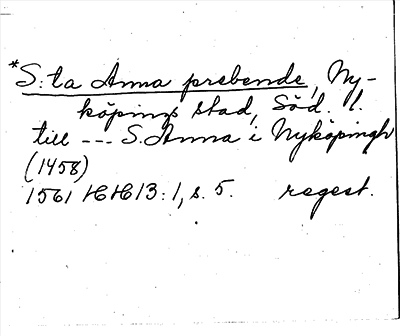 *S:ta Anna prebende, Ny-
köpings stad, Söd. l.
till --- S. Anna i Nyköpingh
(1458)
1561 HH 13:1, s. 5. regest.